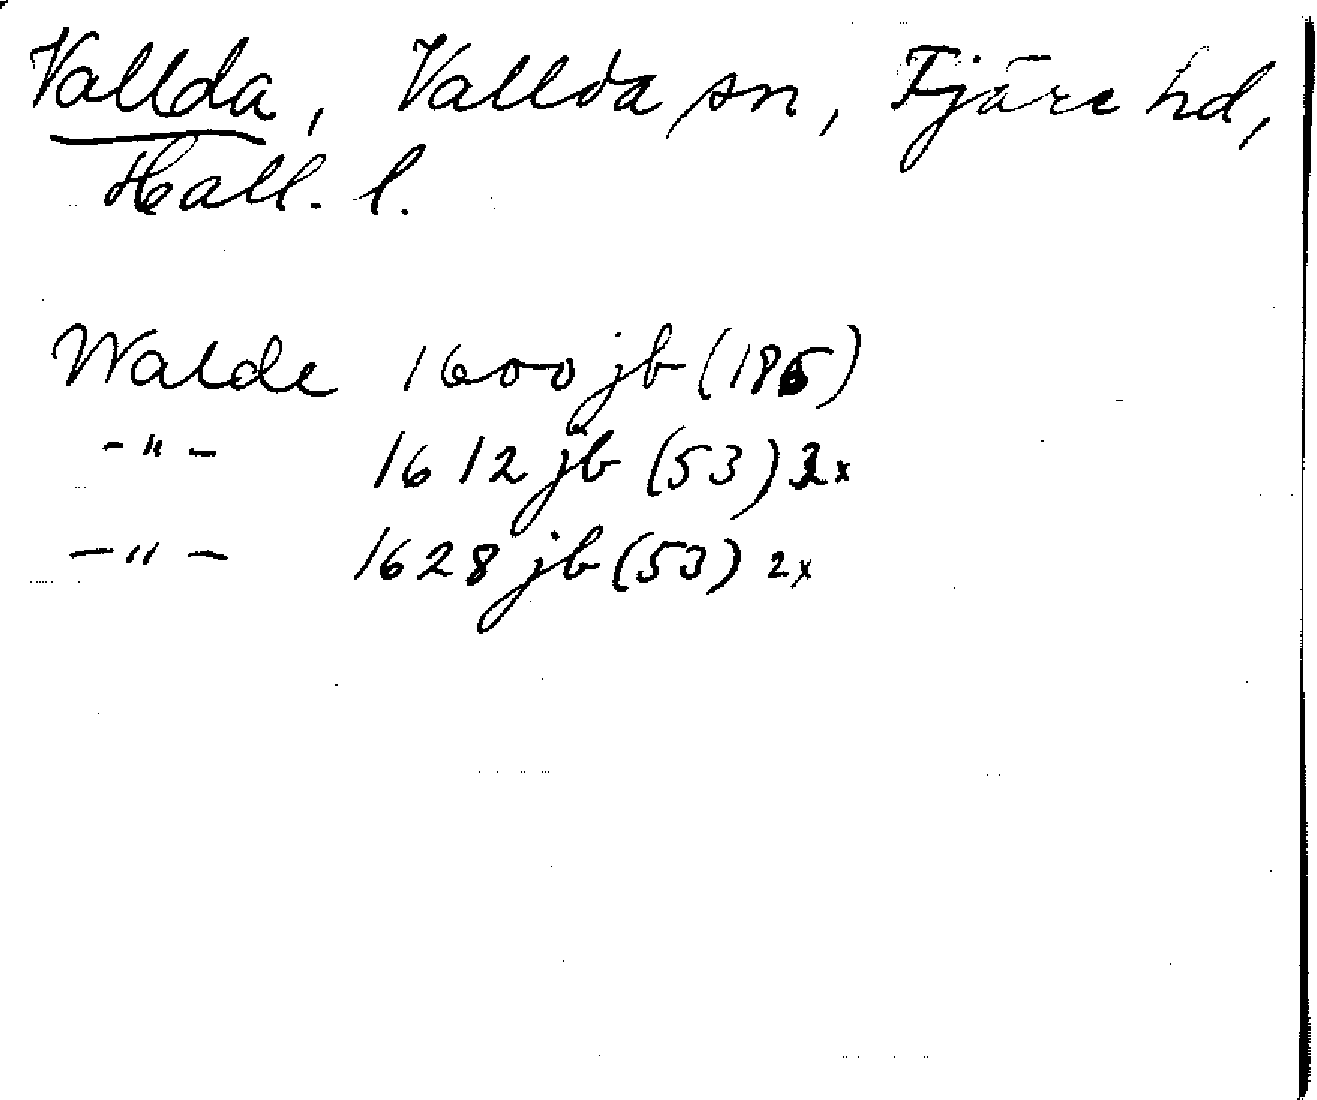 Vallda, Vallda sn, Fjäre hd,
Hall. l.
Walde 1600 jb (186)
-"- 1612 jb (53) 2x
-"- 1628 jb (53) 2x